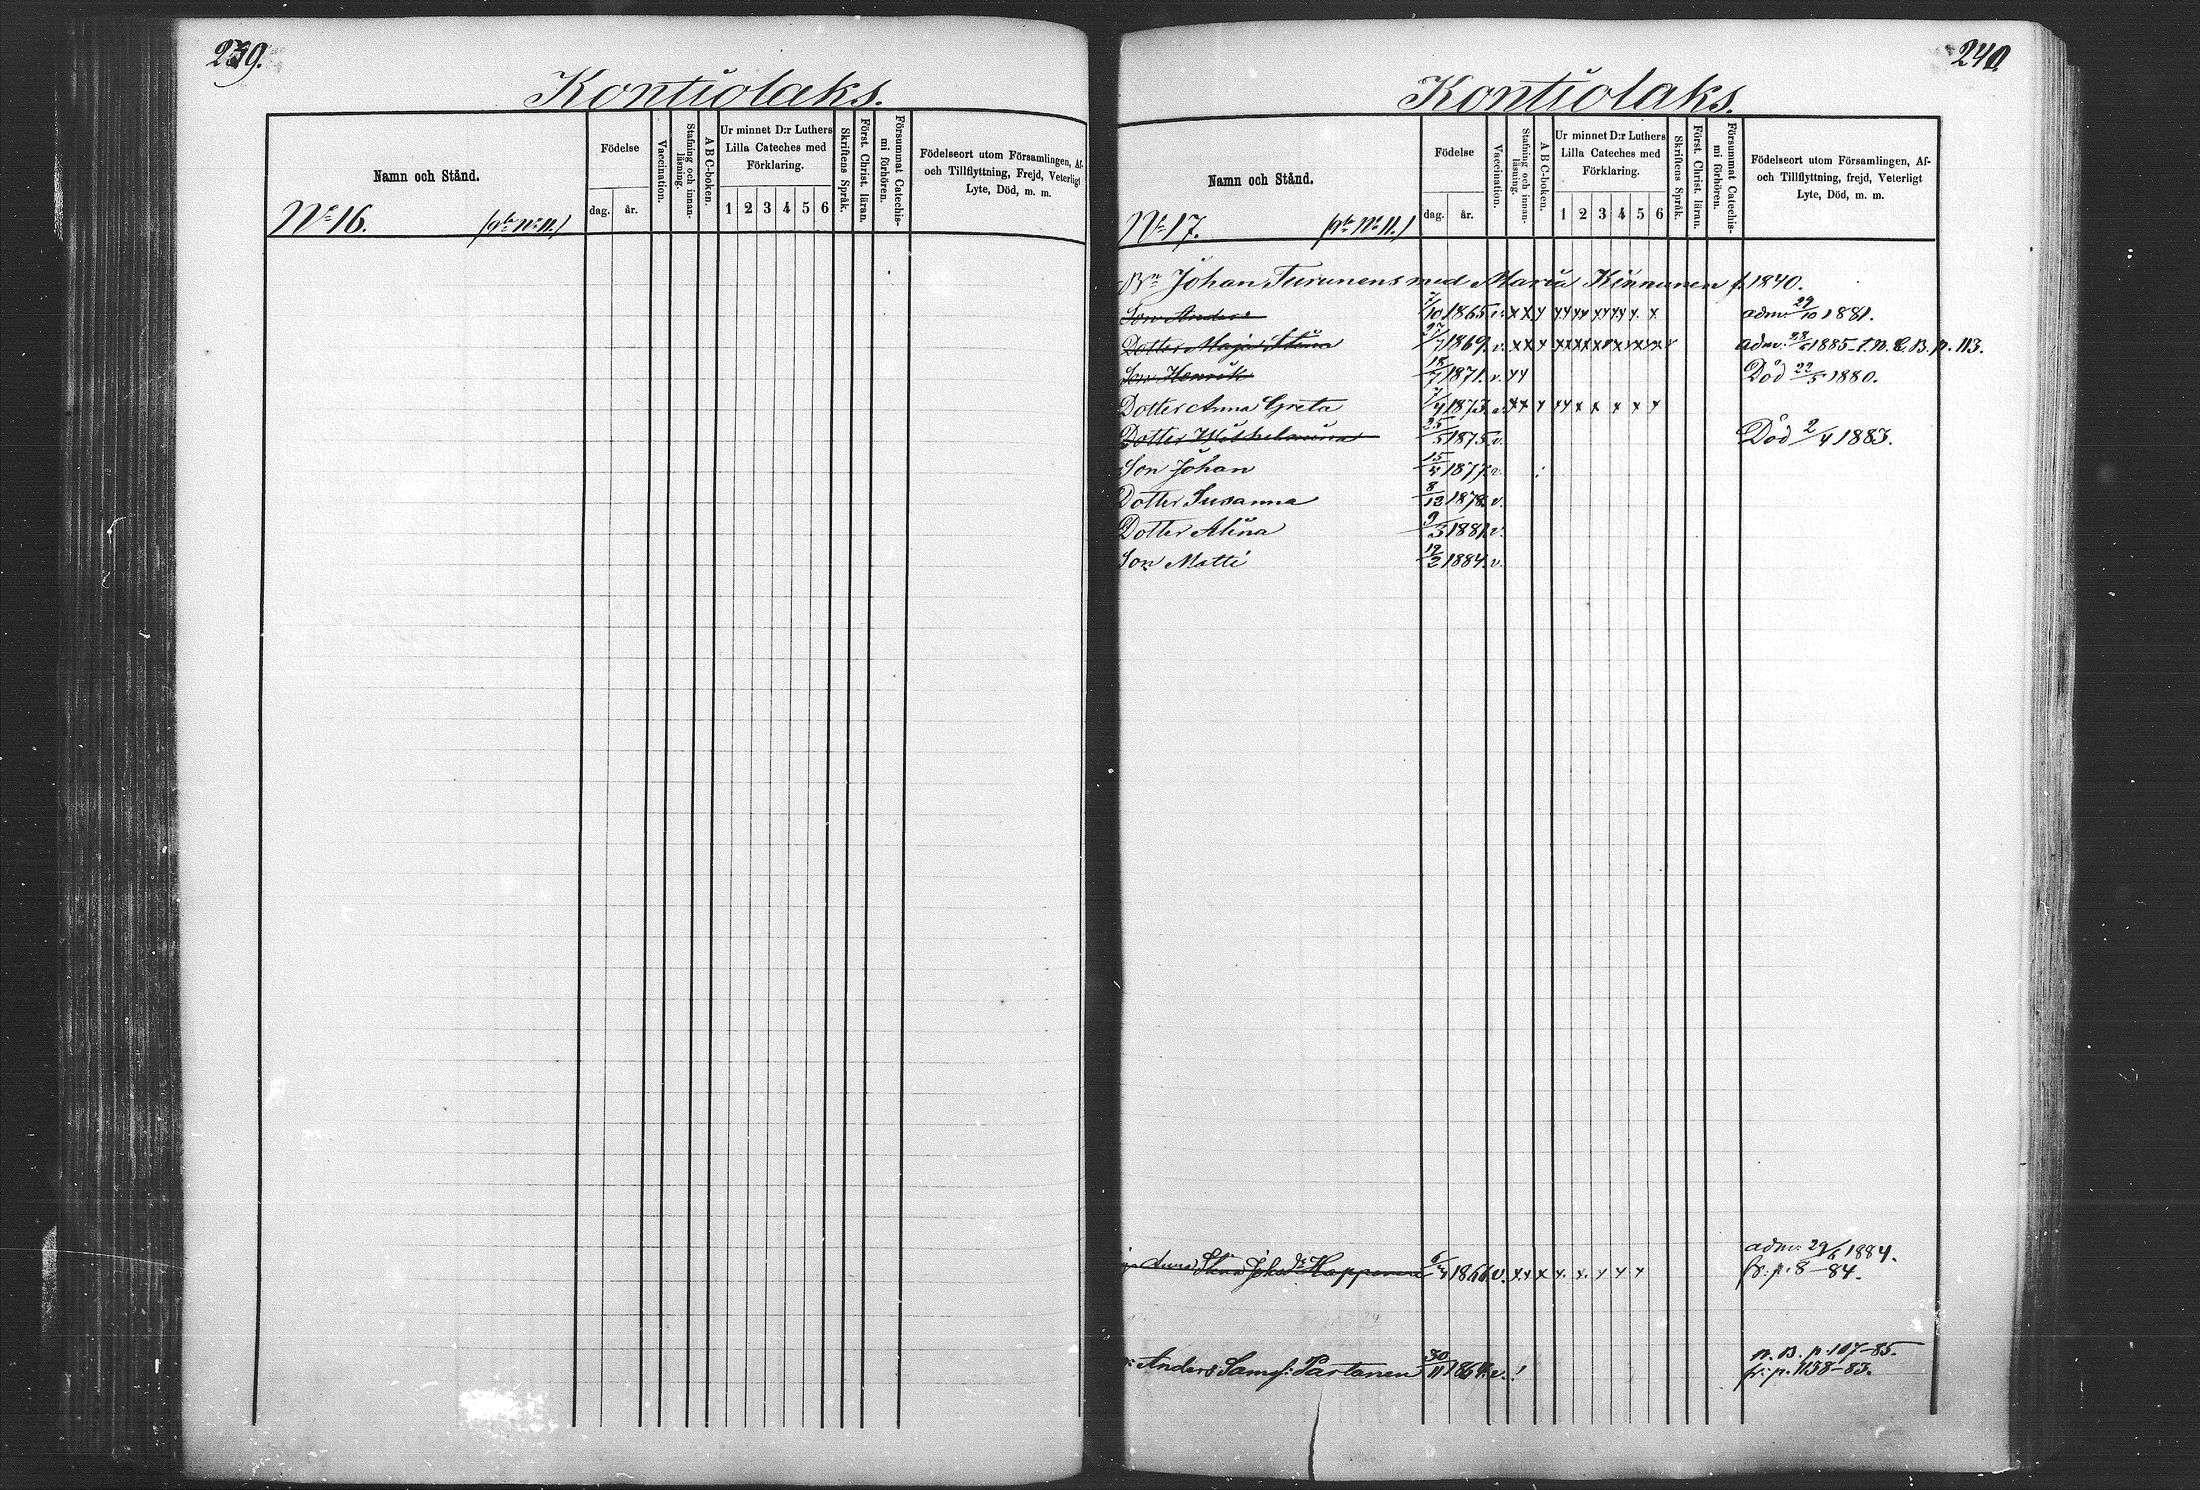 239.
Kontiolaks.
Namn och Stånd.
Födelse
dag.
år.
Vaccination.
Stafning och innan-
läsning.
A B C-boken.
Ur minnet D:r Luthers
Lilla Cateches med
Förklaring.
1 2 3 4 5 6
Skriftens Språk.
Först. Christ. läran.
Försummat Catechis-
mi förhören.
Födelseort utom Församlingen, Af-
och Tillflyttning, Frejd, Veterligt
Lyte, Död, m. m.
No 16.
240
Kontiolaks.
Namn och Stånd.
Födelse
dag.
år.
Vaccination.
Stafning och innan-
läsning.
A B C-boken.
Ur minnet D:r Luthers
Lilla Cateches med
Förklaring.
1 2 3 4 5 6
Skriftens Språk.
Först. Christ. läran.
Försummat Catechis-
mi förhören.
Födelseort utom Församlingen, Af-
och Tillflyttning, frejd, Veterligt
Lyte, Död, m. m.
No 17.
Bn Johan Turunens med Maria Kinnunen f. 1840.
Son Anders 1865 v. x x x x x x x x x x x x adm. 29/10 1881.
Dotter Maja Stina 27/7 1869 v. x x x x x x x x x x x x adm. 1885 t. n. C. B. p. 113.
Son Henrik 18/7 1871. v. x x Död 22/5 1880.
Dotter Anna Greta 1873 x x x x x x x x x x
Dotter Wilhelmina 25/5 1875 v. Död 2/4 1883.
Son Johan 15/4 1877 v.
Dotter Susanna 8/12 1878. v.
Dotter Alina 9/3 1881. v.
Son Matti 12/2 1884. v.
Anna Stina Johsdr Happonen 1866 v. x x x x x x x x adm. 29/6 1884.
fr. p. 8-84.
Anders Samsf: Partanen 30/11 1864. v. ! n. B. p. 107-85.
fr. p. 1138-83.